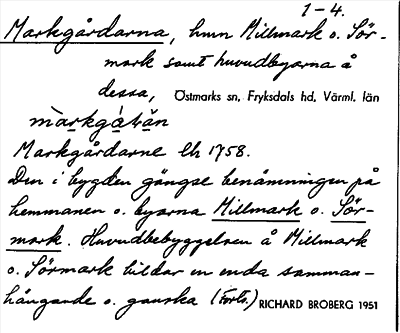 1-4.
Markgårdarna, hmn Millmark o. Sör-
mark samt huvudbyarna å
dessa, Östmarks sn, Fryksdals hd, Värml. län
màrkgáɖän
Markgårdarne lh 1758.
Den i bygden gängse benämningen på
hemmanen o. byarna Millmark o. Sör-
mark. Huvudbebyggelsen å Millmark
o. Sörmark bildar en enda samman-
hängande o. ganska (Forts.) RICHARD BROBERG 1951